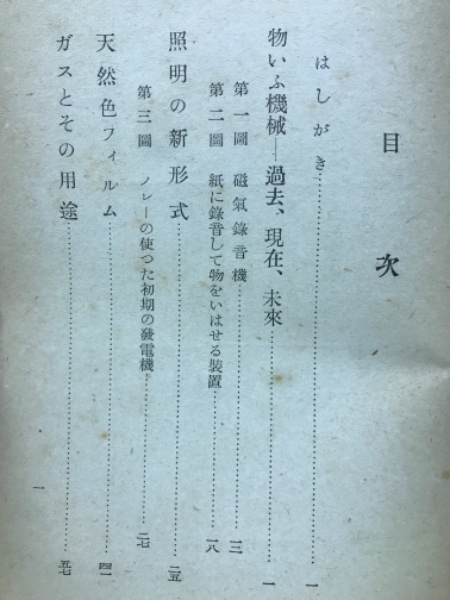 目次
はしがき……一
物いふ機械―過去、現在、未來……一
第一圖 磁氣錄音機……一三
第二圖 紙に錄音して物をいはせる裝置……一八
照明の新形式……二五
第三圖 ノレーの使つた初期の發電機……二七
天然色フィルム……四一
ガスとその用途……五七
一